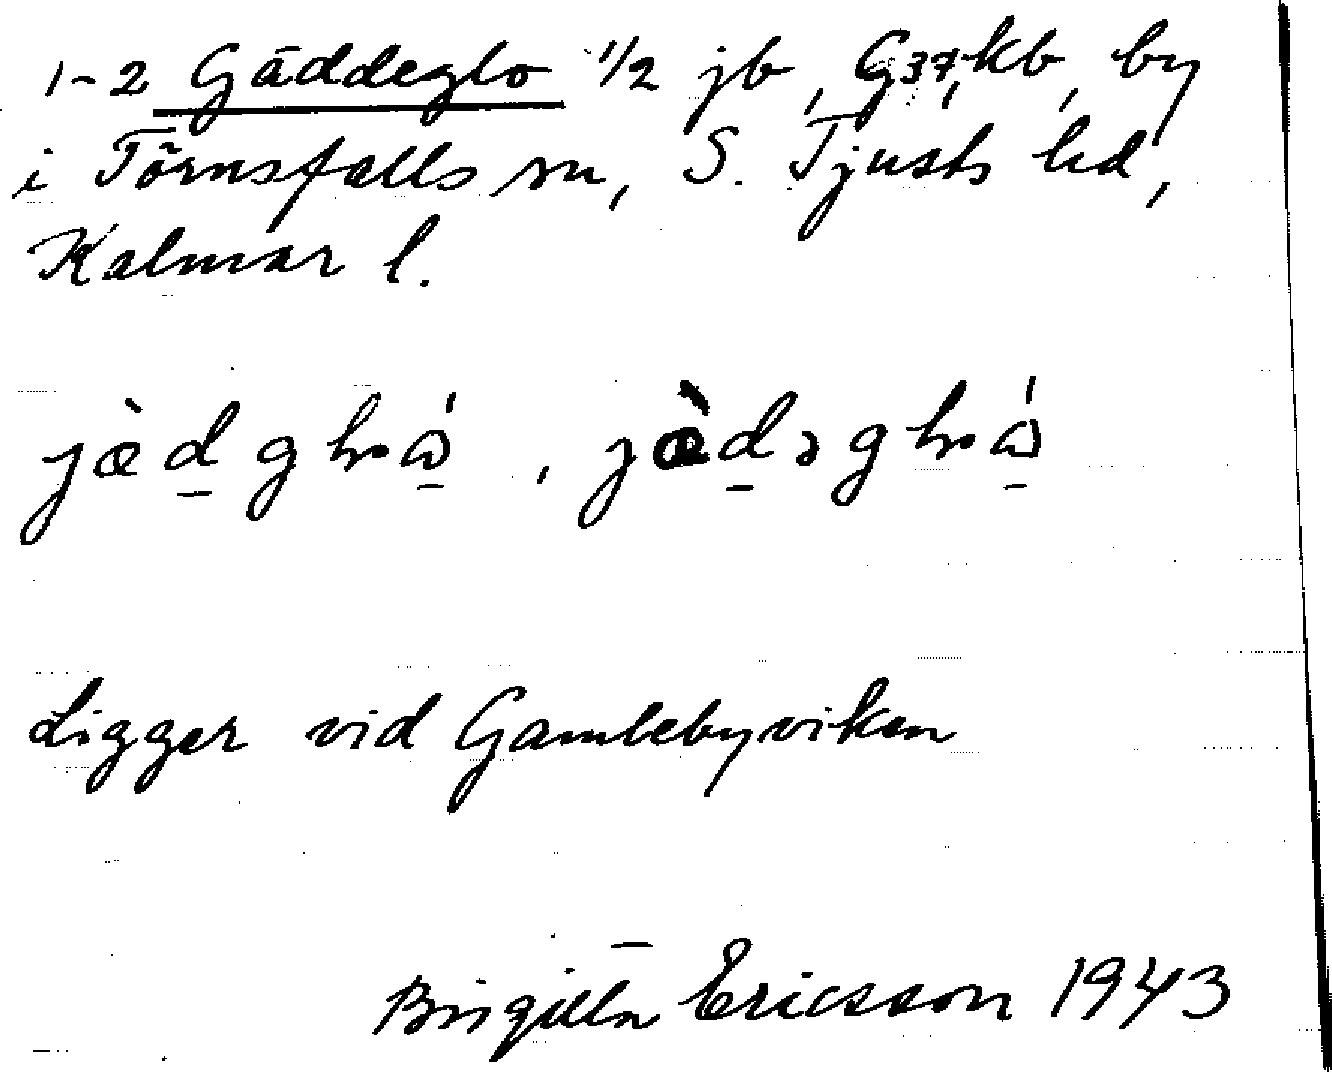 1-2 Gäddeglo 1/2 jb, G37, kb, by
i Törnsfalls sn, S. Tjusts hd,
Kalmar l.
Ligger vid Gamlebyviken
Birgitta Ericsson 1943